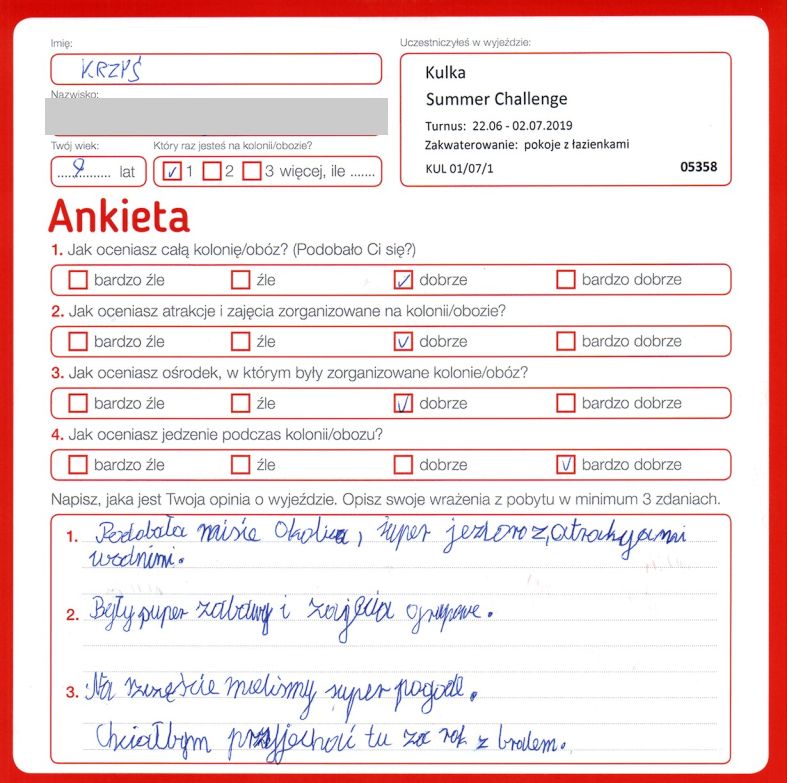 Imię:
Uczestniczyłeś w wyjeździe:
KRZYŚ
Kulka
Summer Challenge
Nazwisko:
Turnus: 22.06 - 02.07.2019
Zakwaterowanie: pokoje z łazienkami
KUL 01/07/1
05358
Twój wiek:
Który raz jesteś na kolonii/obozie?
lat
1 2 3 więcej, ile .......
Ankieta
1. Jak oceniasz całą kolonię/obóz? (Podobało Ci się?)
bardzo źle źle dobrze bardzo dobrze
2. Jak oceniasz atrakcje i zajęcia zorganizowane na kolonii/obozie?
bardzo źle źle dobrze bardzo dobrze
3. Jak oceniasz ośrodek, w którym były zorganizowane kolonie/obóz?
bardzo źle źle dobrze bardzo dobrze
4. Jak oceniasz jedzenie podczas kolonii/obozu?
bardzo źle źle dobrze bardzo dobrze
Napisz, jaka jest Twoja opinia o wyjeździe. Opisz swoje wrażenia z pobytu w minimum 3 zdaniach.
1. Podobała misie Okolica, super jezioro z atrakyami
wodnimi.
2. Były puper zabawy i zajęcia grupowe.
3. Na szczęście mieliśmy super pogode.
Chciałbym przyjechać tu za rok z bratem.